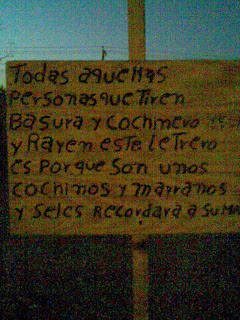 Todas aquellas
Personas que Tiren
Basura y Cochinero
y Rayen este letrero
es Porque Son unos
cochinos y marranos
y Seles Recordara a Su